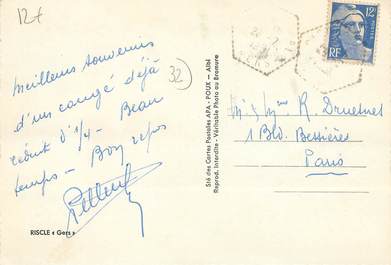 12f
32
Meilleurs souvenirs
d'un congé déjà
réduit d'1/4 - Beau
temps - Bon repos
RISCLE « Gers »
Sté des Cartes Postales APA - POUX - Albi
Reprod. Interdite - Véritable Photo au Bromure
12F
RF
M. & Mme R Druesnes
1 Bld. Bessières
Paris